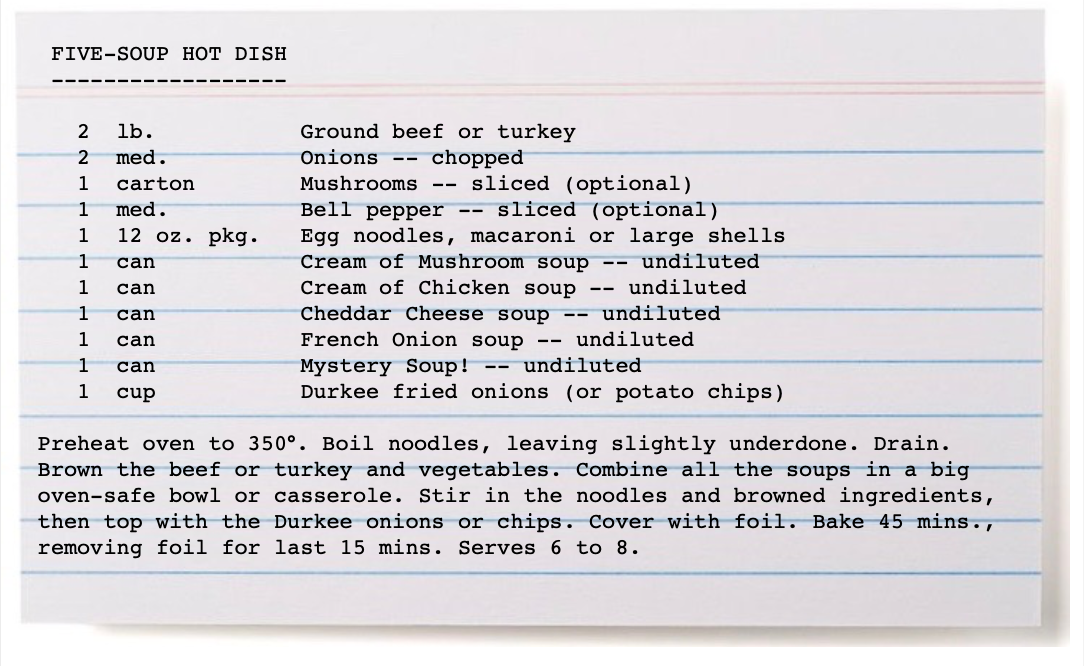 FIVE-SOUP HOT DISH
------------------
2 lb. Ground beef or turkey
2 med. Onions -- chopped
1 carton Mushrooms -- sliced (optional)
1 med. Bell pepper -- sliced (optional)
1 12 oz. pkg. Egg noodles, macaroni or large shells
1 can Cream of Mushroom soup -- undiluted
1 can Cream of Chicken soup -- undiluted
1 can Cheddar Cheese soup -- undiluted
1 can French Onion soup -- undiluted
1 can Mystery Soup! -- undiluted
1 cup Durkee fried onions (or potato chips)
Preheat oven to 350°. Boil noodles, leaving slightly underdone. Drain.
Brown the beef or turkey and vegetables. Combine all the soups in a big
oven-safe bowl or casserole. Stir in the noodles and browned ingredients,
then top with the Durkee onions or chips. Cover with foil. Bake 45 mins.,
removing foil for last 15 mins. Serves 6 to 8.